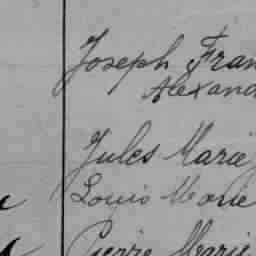 Joseph Fran
Alexand
Jules Marie
Louis Marie
Pierre Marie